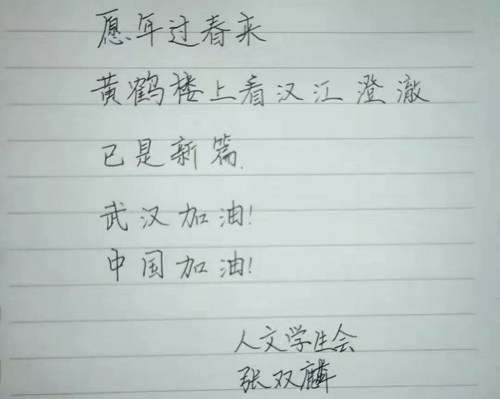 愿年过春来
黄鹤楼上看汉江澄澈
已是新篇.
武汉加油!
中国加油!
人文学生会
张双麟